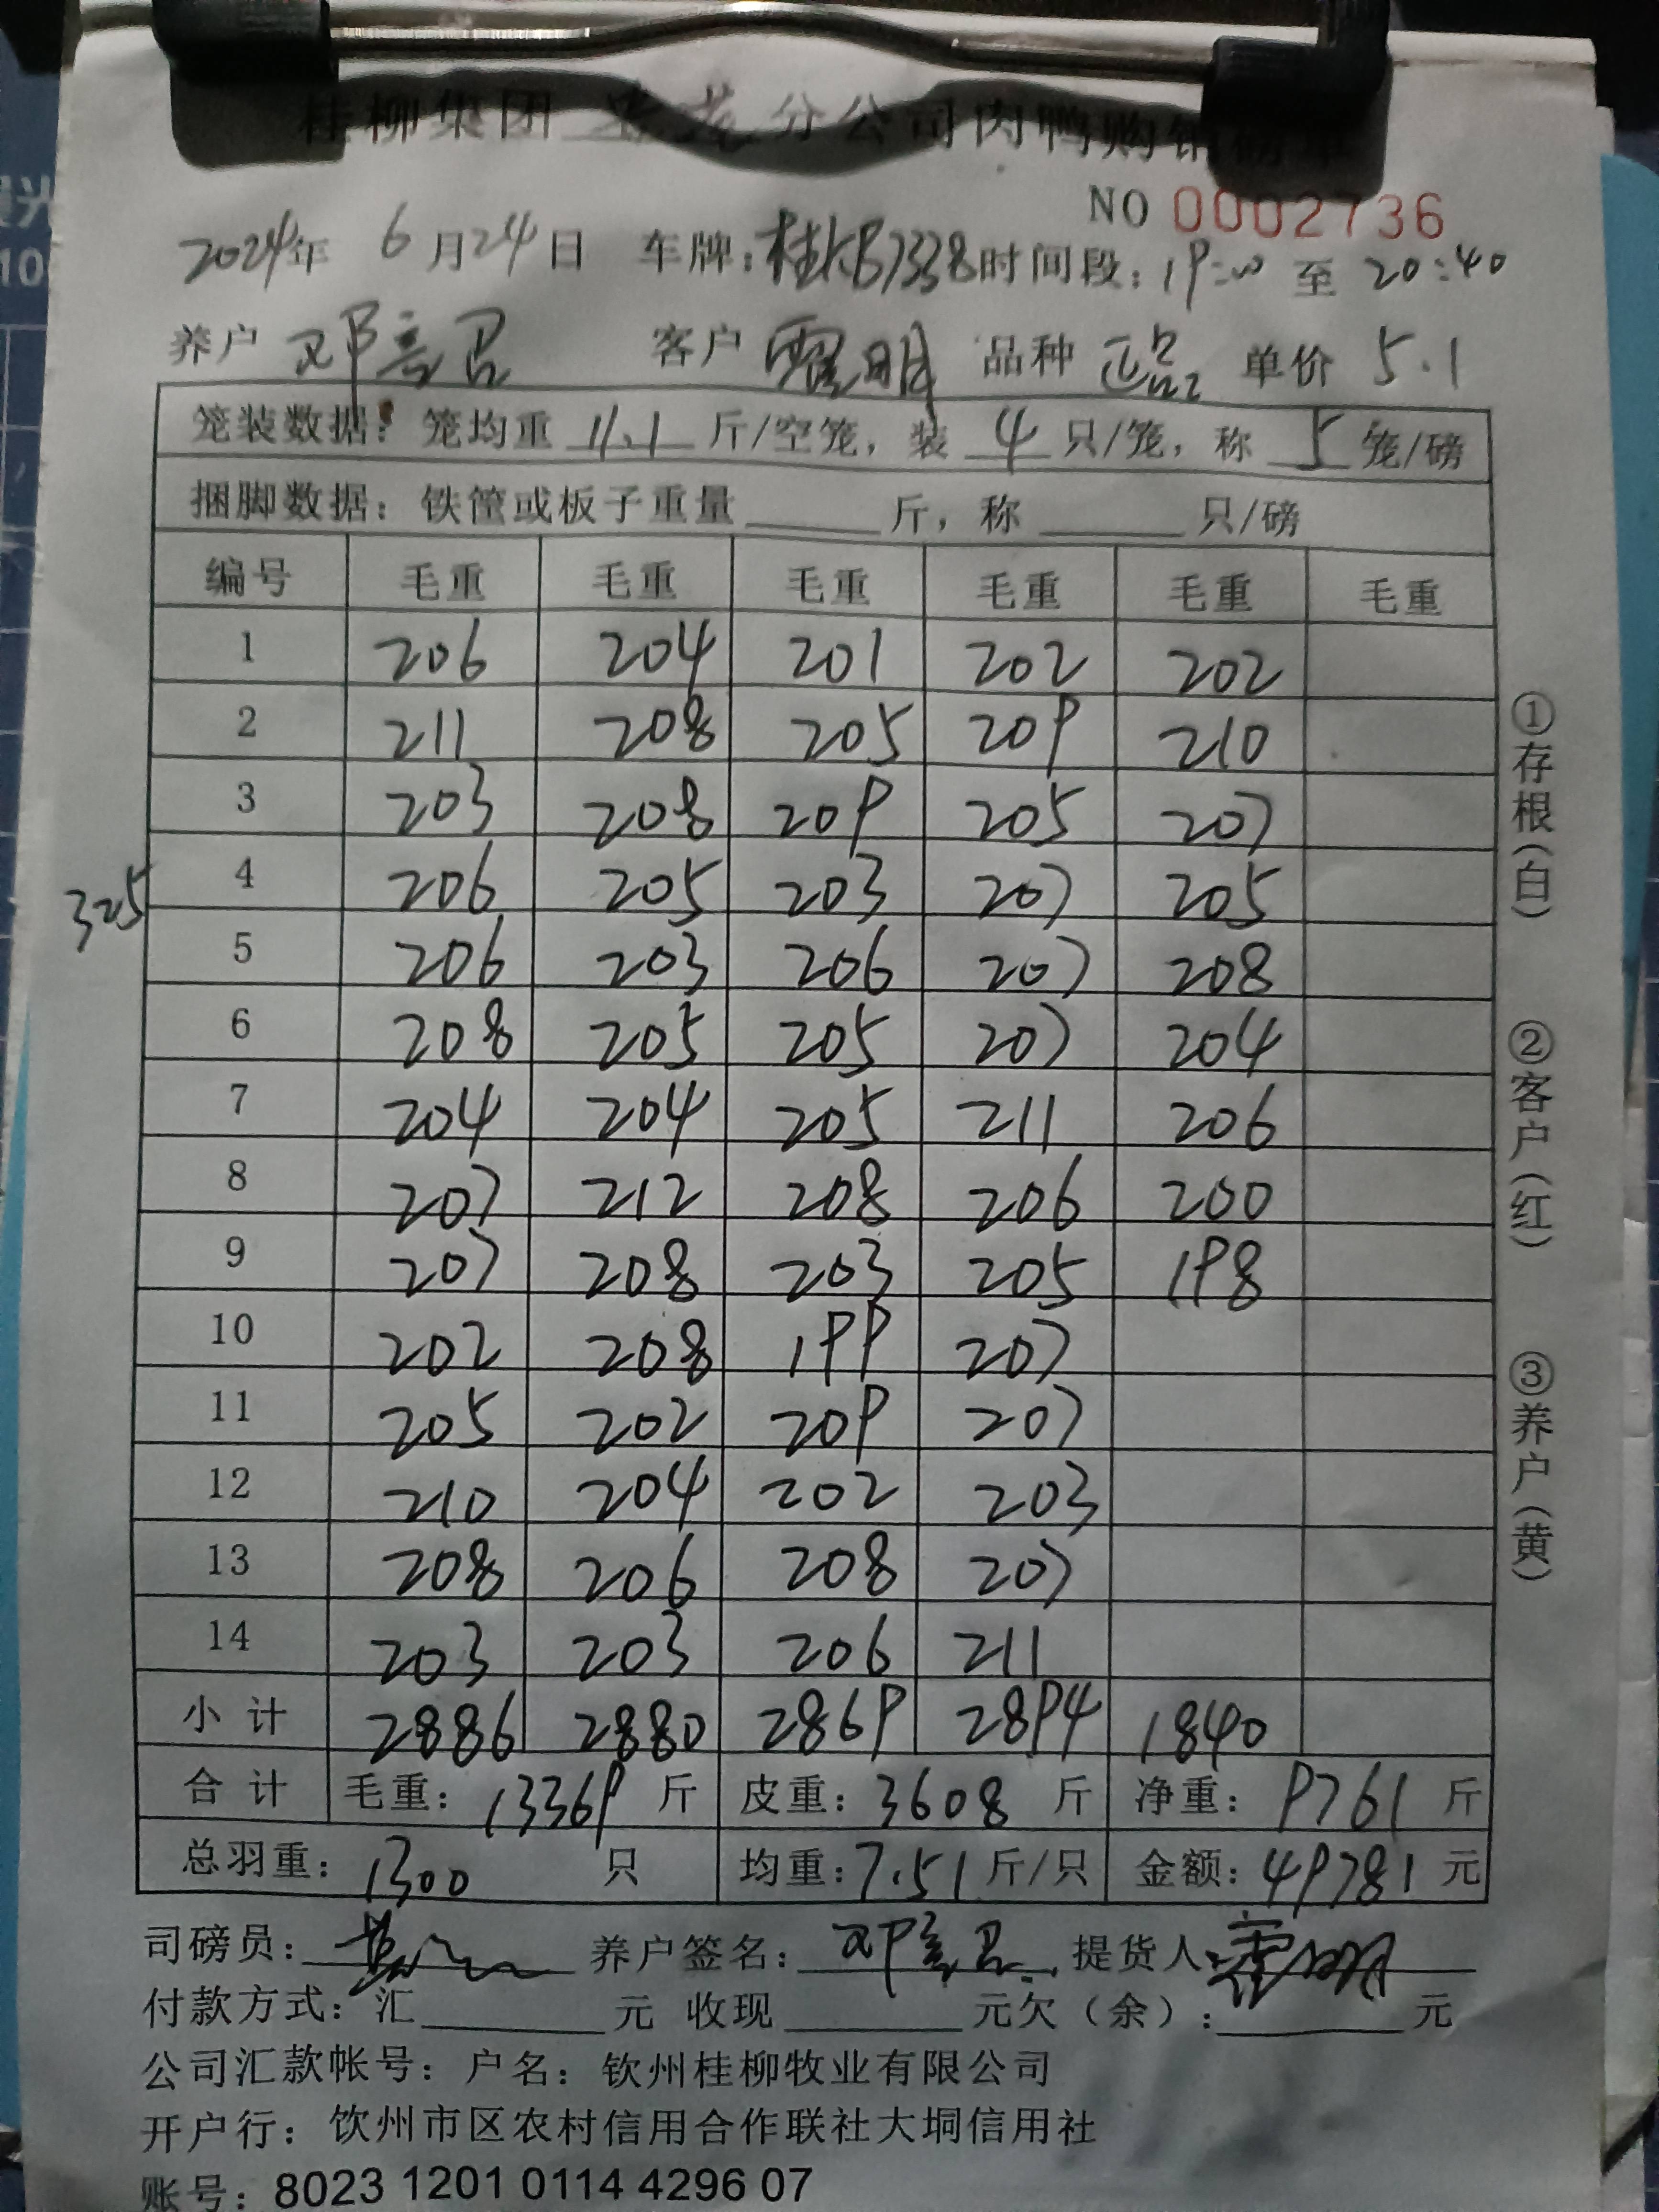 桂柳集团 分公司肉鸭购销磅单
NO 0002736
2024年 6月24日 车牌:桂KB7338时间段:19:00 至 20:40
养户 邓 客户 明 品种 正品 单价 5.1
笼装数据:笼均重 11.1 斤/空笼,装 4 只/笼,称 5 笼/磅
捆脚数据:铁筐或板子重量 斤,称 只/磅
编号 毛重 毛重 毛重 毛重 毛重 毛重
1 206 204 201 202 202
2 211 208 205 209 210
3 203 208 209 205 207
4 206 205 203 207 205
325
5 206 203 206 207 208
6 208 205 205 207 204
7 204 204 205 211 206
8 207 212 208 206 200
9 207 208 203 205 198
10 202 208 199 207
11 205 202 209 207
12 210 204 202 203
13 208 206 208 207
14 203 203 206 211
小计 2886 2880 2869 2894 1840
合计 毛重:13369 斤 皮重:3608 斤 净重:9761 斤
总羽重:1300 只 均重:7.51斤/只 金额:49781元
司磅员: 养户签名:邓 提货人: 明
付款方式:汇 元 收现 元欠(余): 元
公司汇款帐号:户名:钦州桂柳牧业有限公司
开户行:饮州市区农村信用合作联社大垌信用社
账号:8023 1201 0114 4296 07
①存根(白) ②客户(红) ③养户(黄)